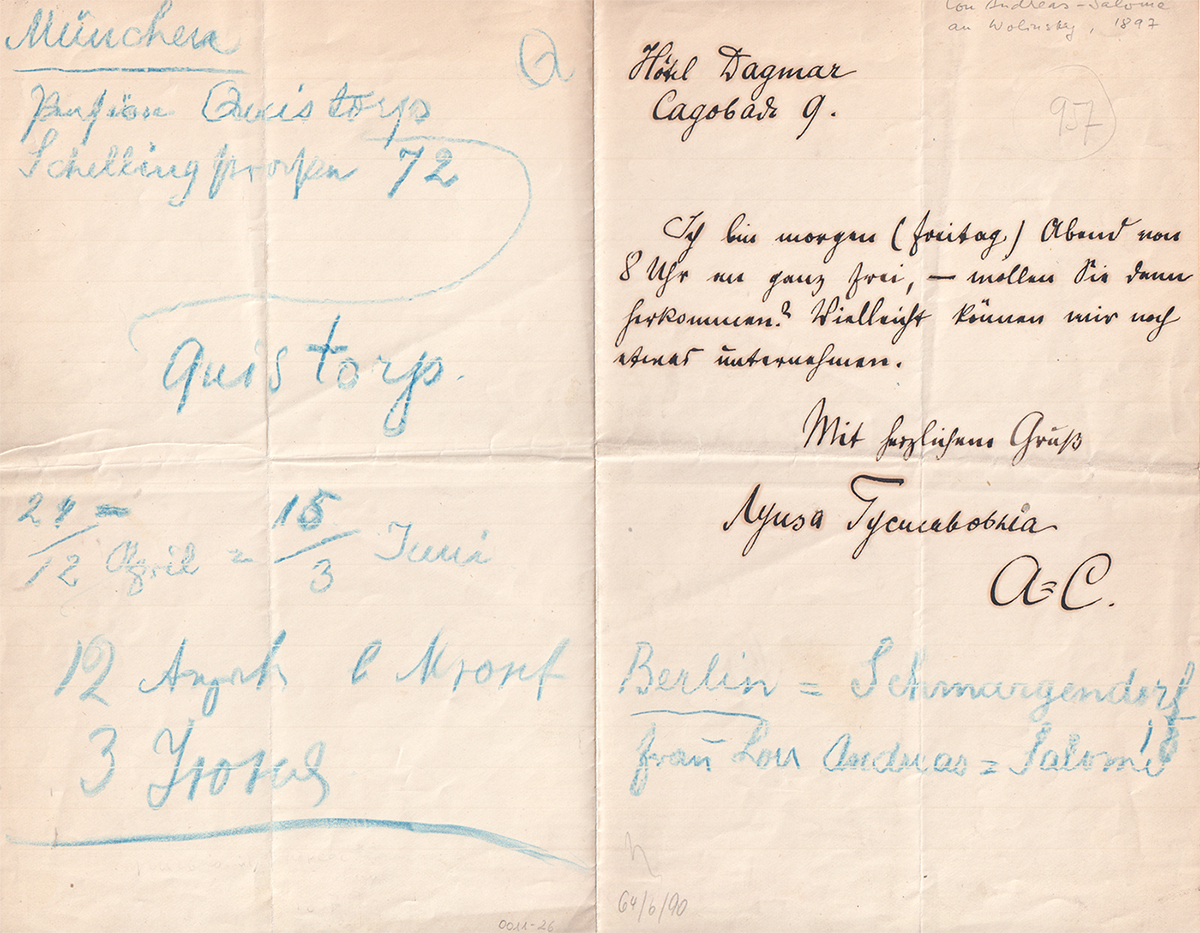 München
Q
Pension Quistorp
Schellingstrassen 72
Quistorp.
24 =
12 April = 15/3 Juni
12
3
Lou Andreas-Salomé
an Wolinsky, 1897
957
Hôtel Dagmar
Cagobade 9.
Ich bin morgen (Freitag) Abend von
8 Uhr an ganz frei, – wollen Sie dann
herkommen? Vielleicht können wir noch
etwas unternehmen.
Mit herzlichem Gruß
Луиза Густавовна
A=C.
Berlin = Schmargendorf
Frau Lou Andreas = Salomé
64/6/90
0011-26